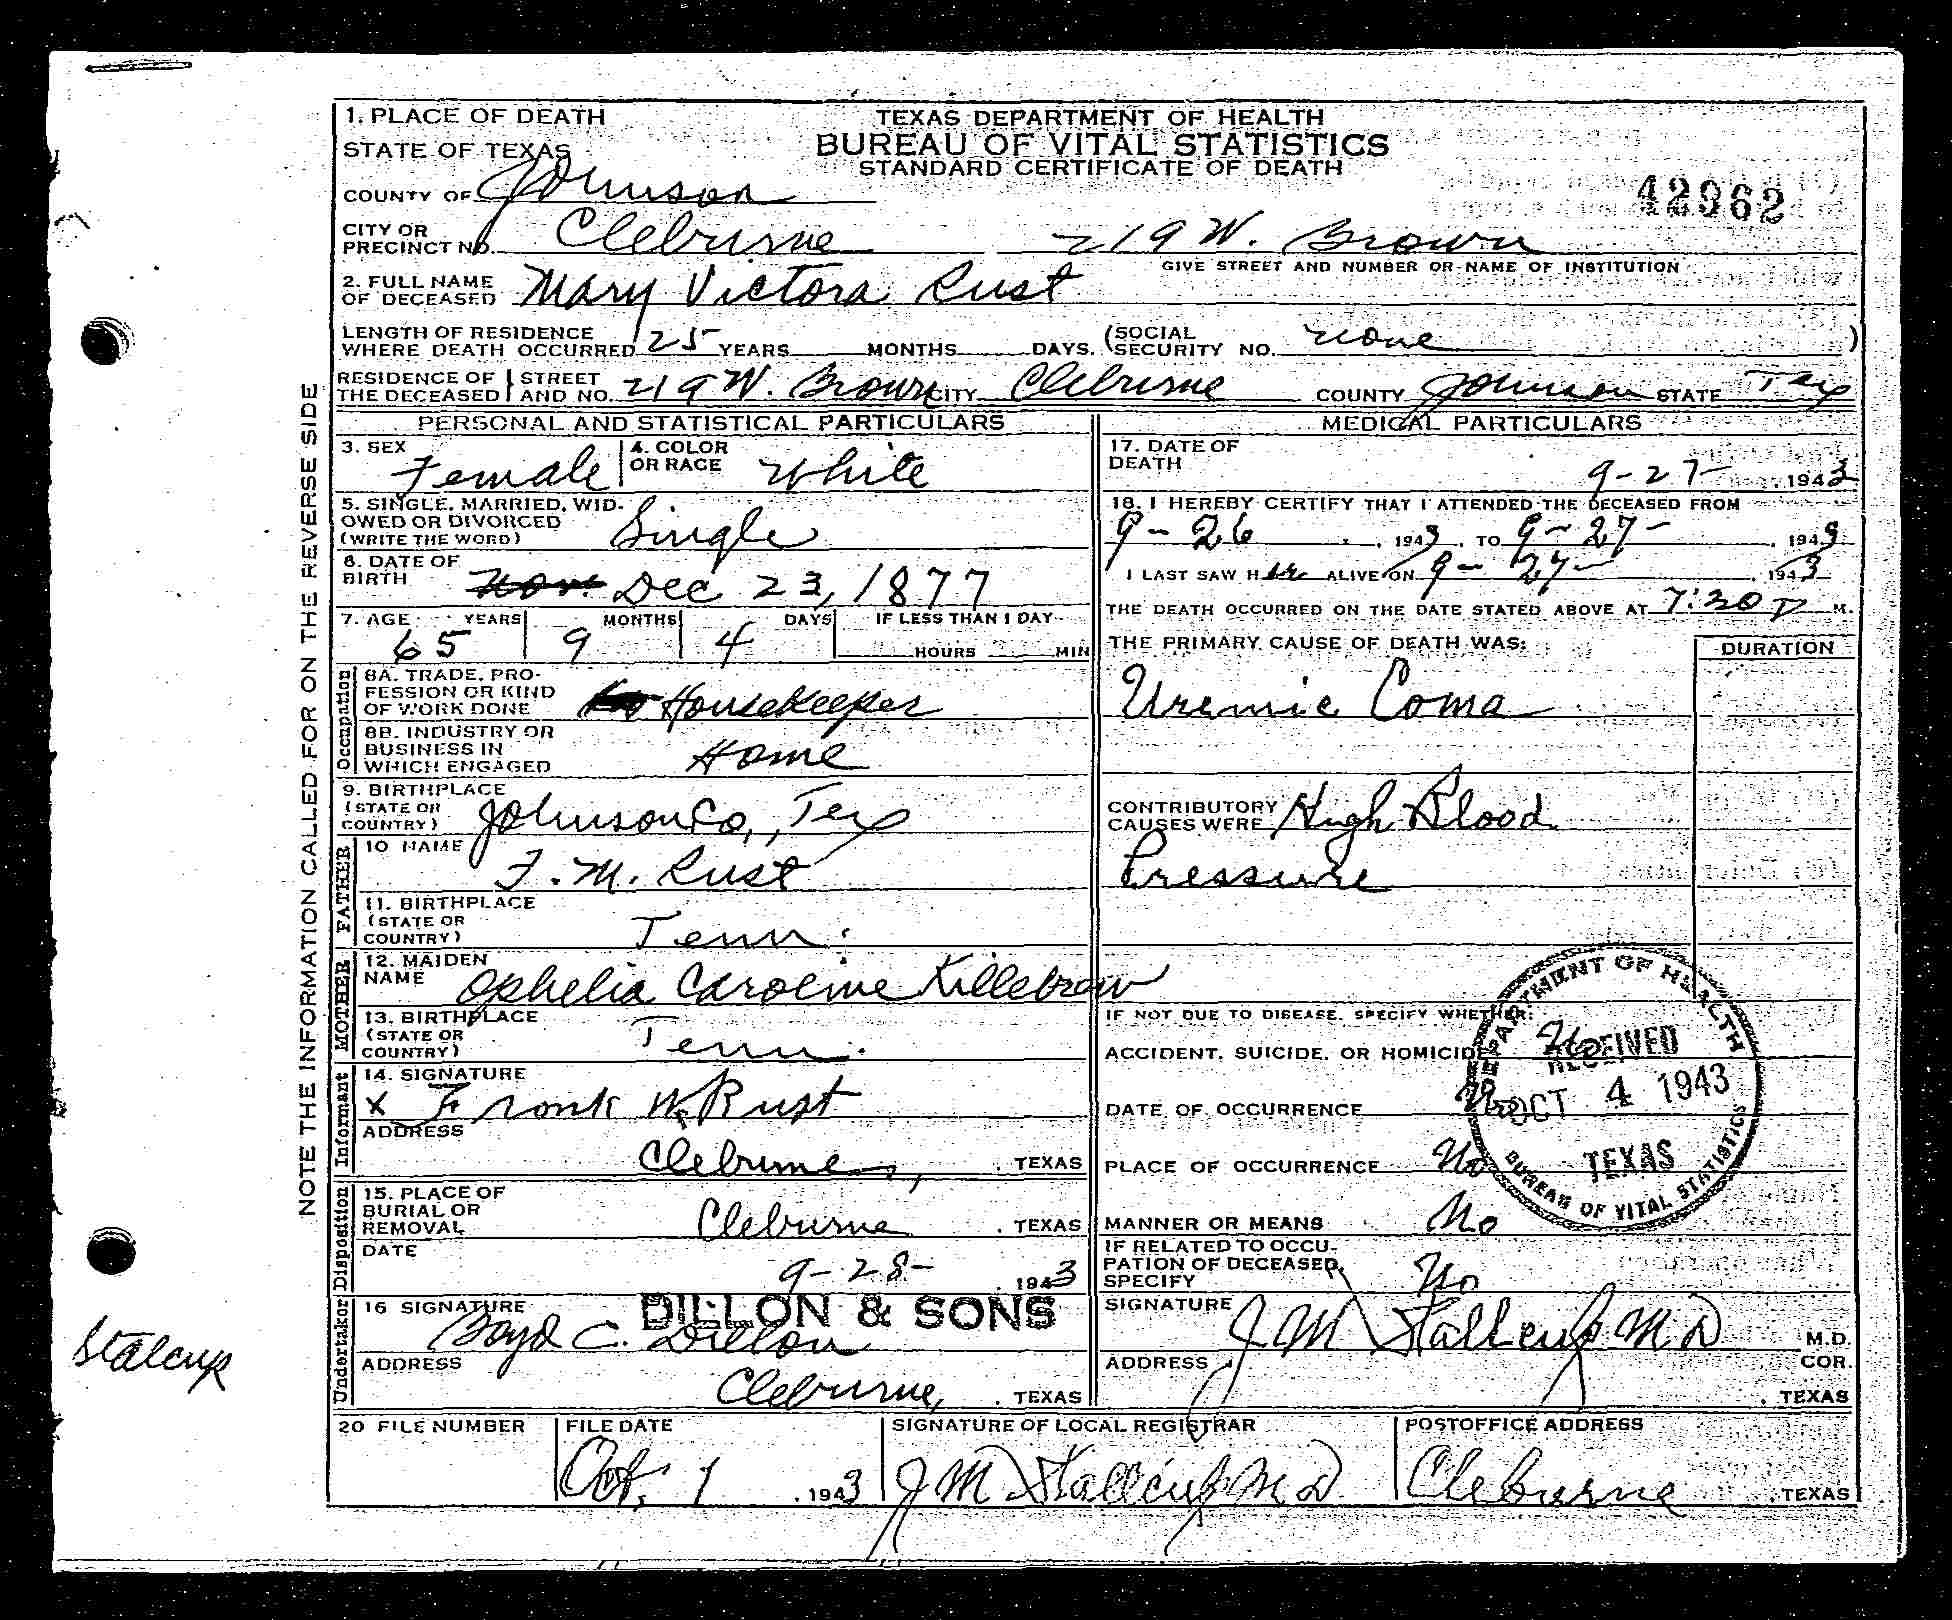 1. PLACE OF DEATH
TEXAS DEPARTMENT OF HEALTH
BUREAU OF VITAL STATISTICS
STANDARD CERTIFICATE OF DEATH
STATE OF TEXAS
COUNTY OF Johnson
42962
CITY OR PRECINCT NO. Cleburne 219 W. Brown
GIVE STREET AND NUMBER OR NAME OF INSTITUTION
2. FULL NAME OF DECEASED Mary Victora Rust
LENGTH OF RESIDENCE WHERE DEATH OCCURRED 25 YEARS MONTHS DAYS. (SOCIAL SECURITY NO. none )
RESIDENCE OF THE DECEASED STREET AND NO. 219 W. Brown CITY Cleburne COUNTY Johnson STATE Tex
NOTE THE INFORMATION CALLED FOR ON THE REVERSE SIDE
PERSONAL AND STATISTICAL PARTICULARS
3. SEX Female 4. COLOR OR RACE White
5. SINGLE, MARRIED, WIDOWED OR DIVORCED (WRITE THE WORD) Single
6. DATE OF BIRTH Dec 23, 1877
7. AGE YEARS 65 MONTHS 9 DAYS 4 IF LESS THAN 1 DAY HOURS MIN
Occupation
8A. TRADE, PROFESSION OR KIND OF WORK DONE Housekeeper
8B. INDUSTRY OR BUSINESS IN WHICH ENGAGED Home
9. BIRTHPLACE (STATE OR COUNTRY) Johnson Co, Tex
FATHER
10 NAME F. M. Rust
11. BIRTHPLACE (STATE OR COUNTRY) Tenn.
MOTHER
12. MAIDEN NAME Ophelia Caroline Killebrew
13. BIRTHPLACE (STATE OR COUNTRY) Tenn.
Informant
14. SIGNATURE
X Frank W. Rust
ADDRESS Cleburne, TEXAS
Disposition
15. PLACE OF BURIAL OR REMOVAL Cleburne, TEXAS
DATE 9-28- 1943
Undertaker
16 SIGNATURE DILLON & SONS
Boyd C. Dillon
ADDRESS Cleburne, TEXAS
MEDICAL PARTICULARS
17. DATE OF DEATH 9-27-, 1943
18. I HEREBY CERTIFY THAT I ATTENDED THE DECEASED FROM
9-26, 1943, TO 9-27-, 1943
I LAST SAW Her ALIVE ON 9-27-, 1943
THE DEATH OCCURRED ON THE DATE STATED ABOVE AT 7:20 P M.
THE PRIMARY CAUSE OF DEATH WAS: DURATION
Uremic Coma
CONTRIBUTORY CAUSES WERE High Blood
Pressure
IF NOT DUE TO DISEASE, SPECIFY WHETHER:
ACCIDENT, SUICIDE, OR HOMICIDE No
DATE OF OCCURRENCE No
PLACE OF OCCURRENCE No
MANNER OR MEANS No
IF RELATED TO OCCUPATION OF DECEASED, SPECIFY No
DEPARTMENT OF HEALTH
RECEIVED
OCT 4 1943
TEXAS
BUREAU OF VITAL STATISTICS
SIGNATURE J M Stallcup M D M.D.
ADDRESS COR.
, TEXAS
20 FILE NUMBER
FILE DATE Oct. 1, 1943
SIGNATURE OF LOCAL REGISTRAR J M Stallcup M D
POSTOFFICE ADDRESS Cleburne, TEXAS
Stalcup